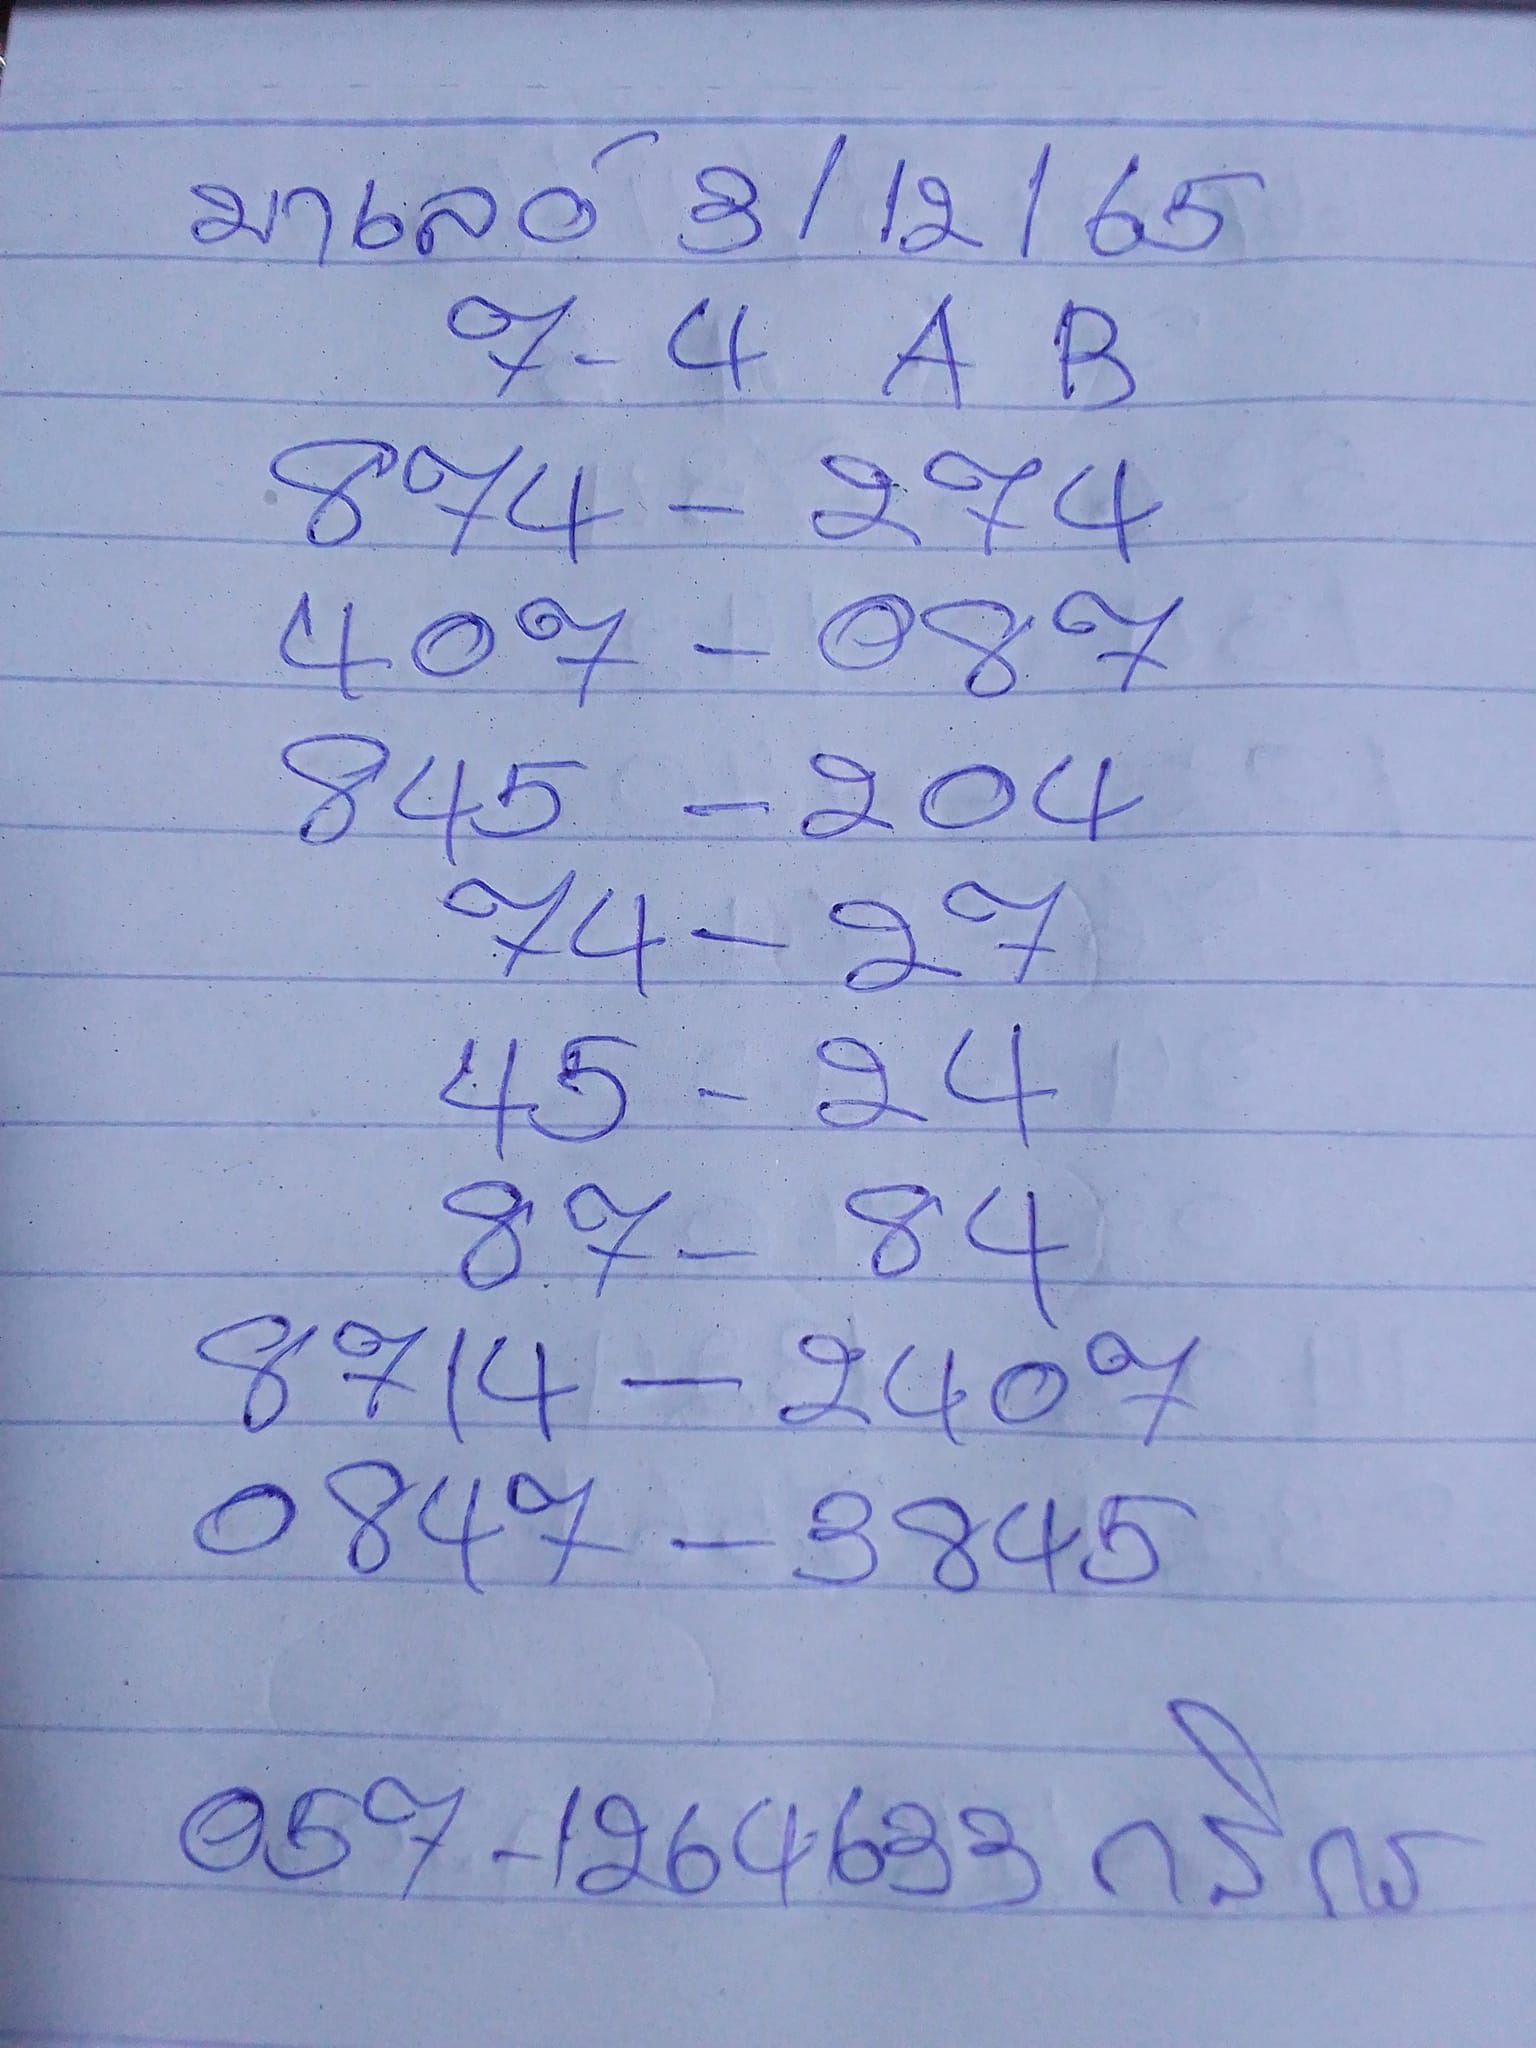 มาเลย์ 3/12/65
7-4 A B
874-274
407-087
845-204
74-27
45-24
87-84
8714-2407
0847-3845
057-1264633